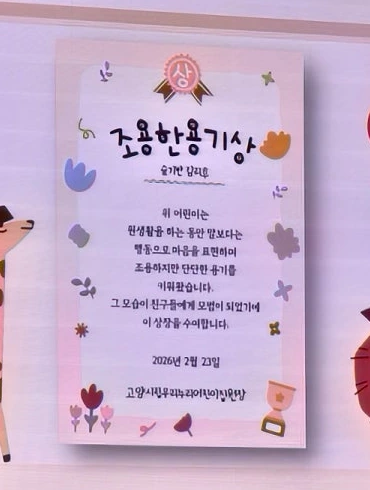 상
조용한용기상
슬기반 김리호
위 어린이는
원생활을 하는 동안 말보다는
행동으로 마음을 표현하며
조용하지만 단단한 용기를
키워왔습니다.
그 모습이 친구들에게 모범이 되었기에
이 상장을 수여합니다.
2026년 2월 23일
고양시립우리누리어린이집원장